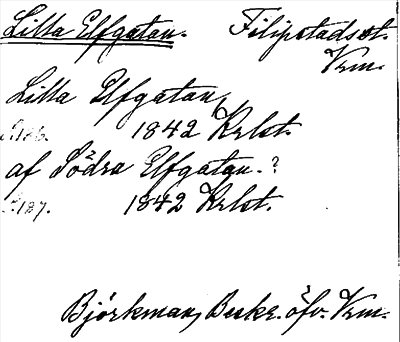 Lilla Elfgatan. Filipstads st.
Vrm.
Lilla Elfgatan,
S. 186. 1842 Krlst.
af Södra Elfgatan.?
S. 187. 1842 Krlst.
Björkman, Beskr. öfv. Vrm.